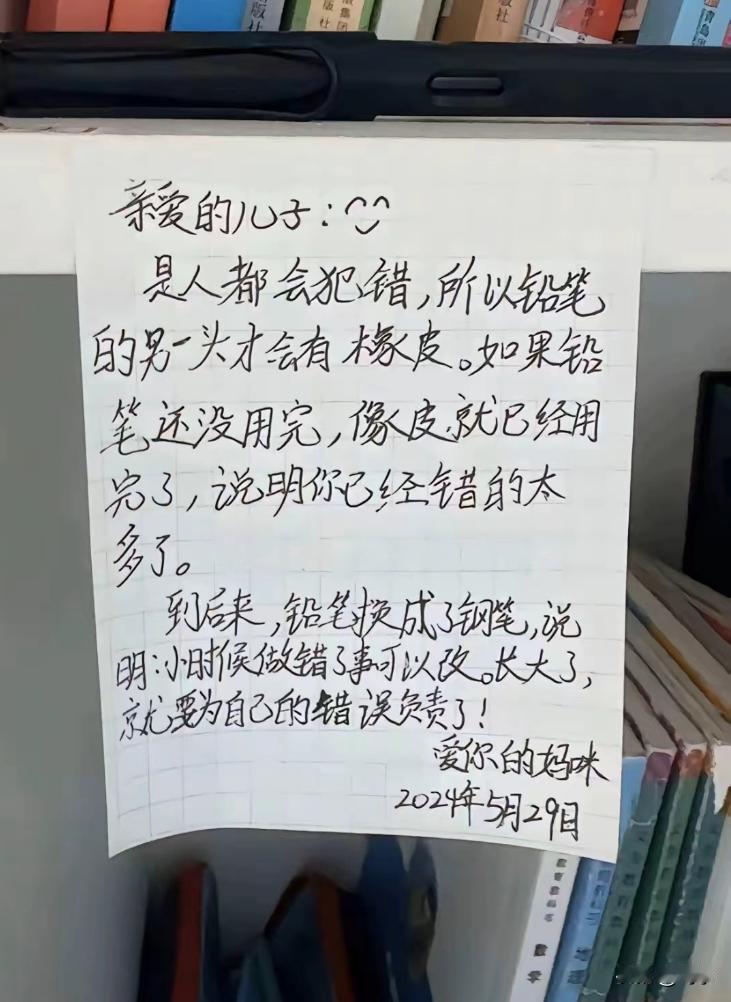 出版社
亲爱的儿子:
是人都会犯错,所以铅笔
的另一头才会有橡皮。如果铅
笔还没用完,像皮就已经用
完了,说明你已经错的太
多了。
到后来,铅笔换成了钢笔,说
明:小时候做错了事可以改。长大了,
就要为自己的错误负责了!
爱你的妈咪
2024年5月29日